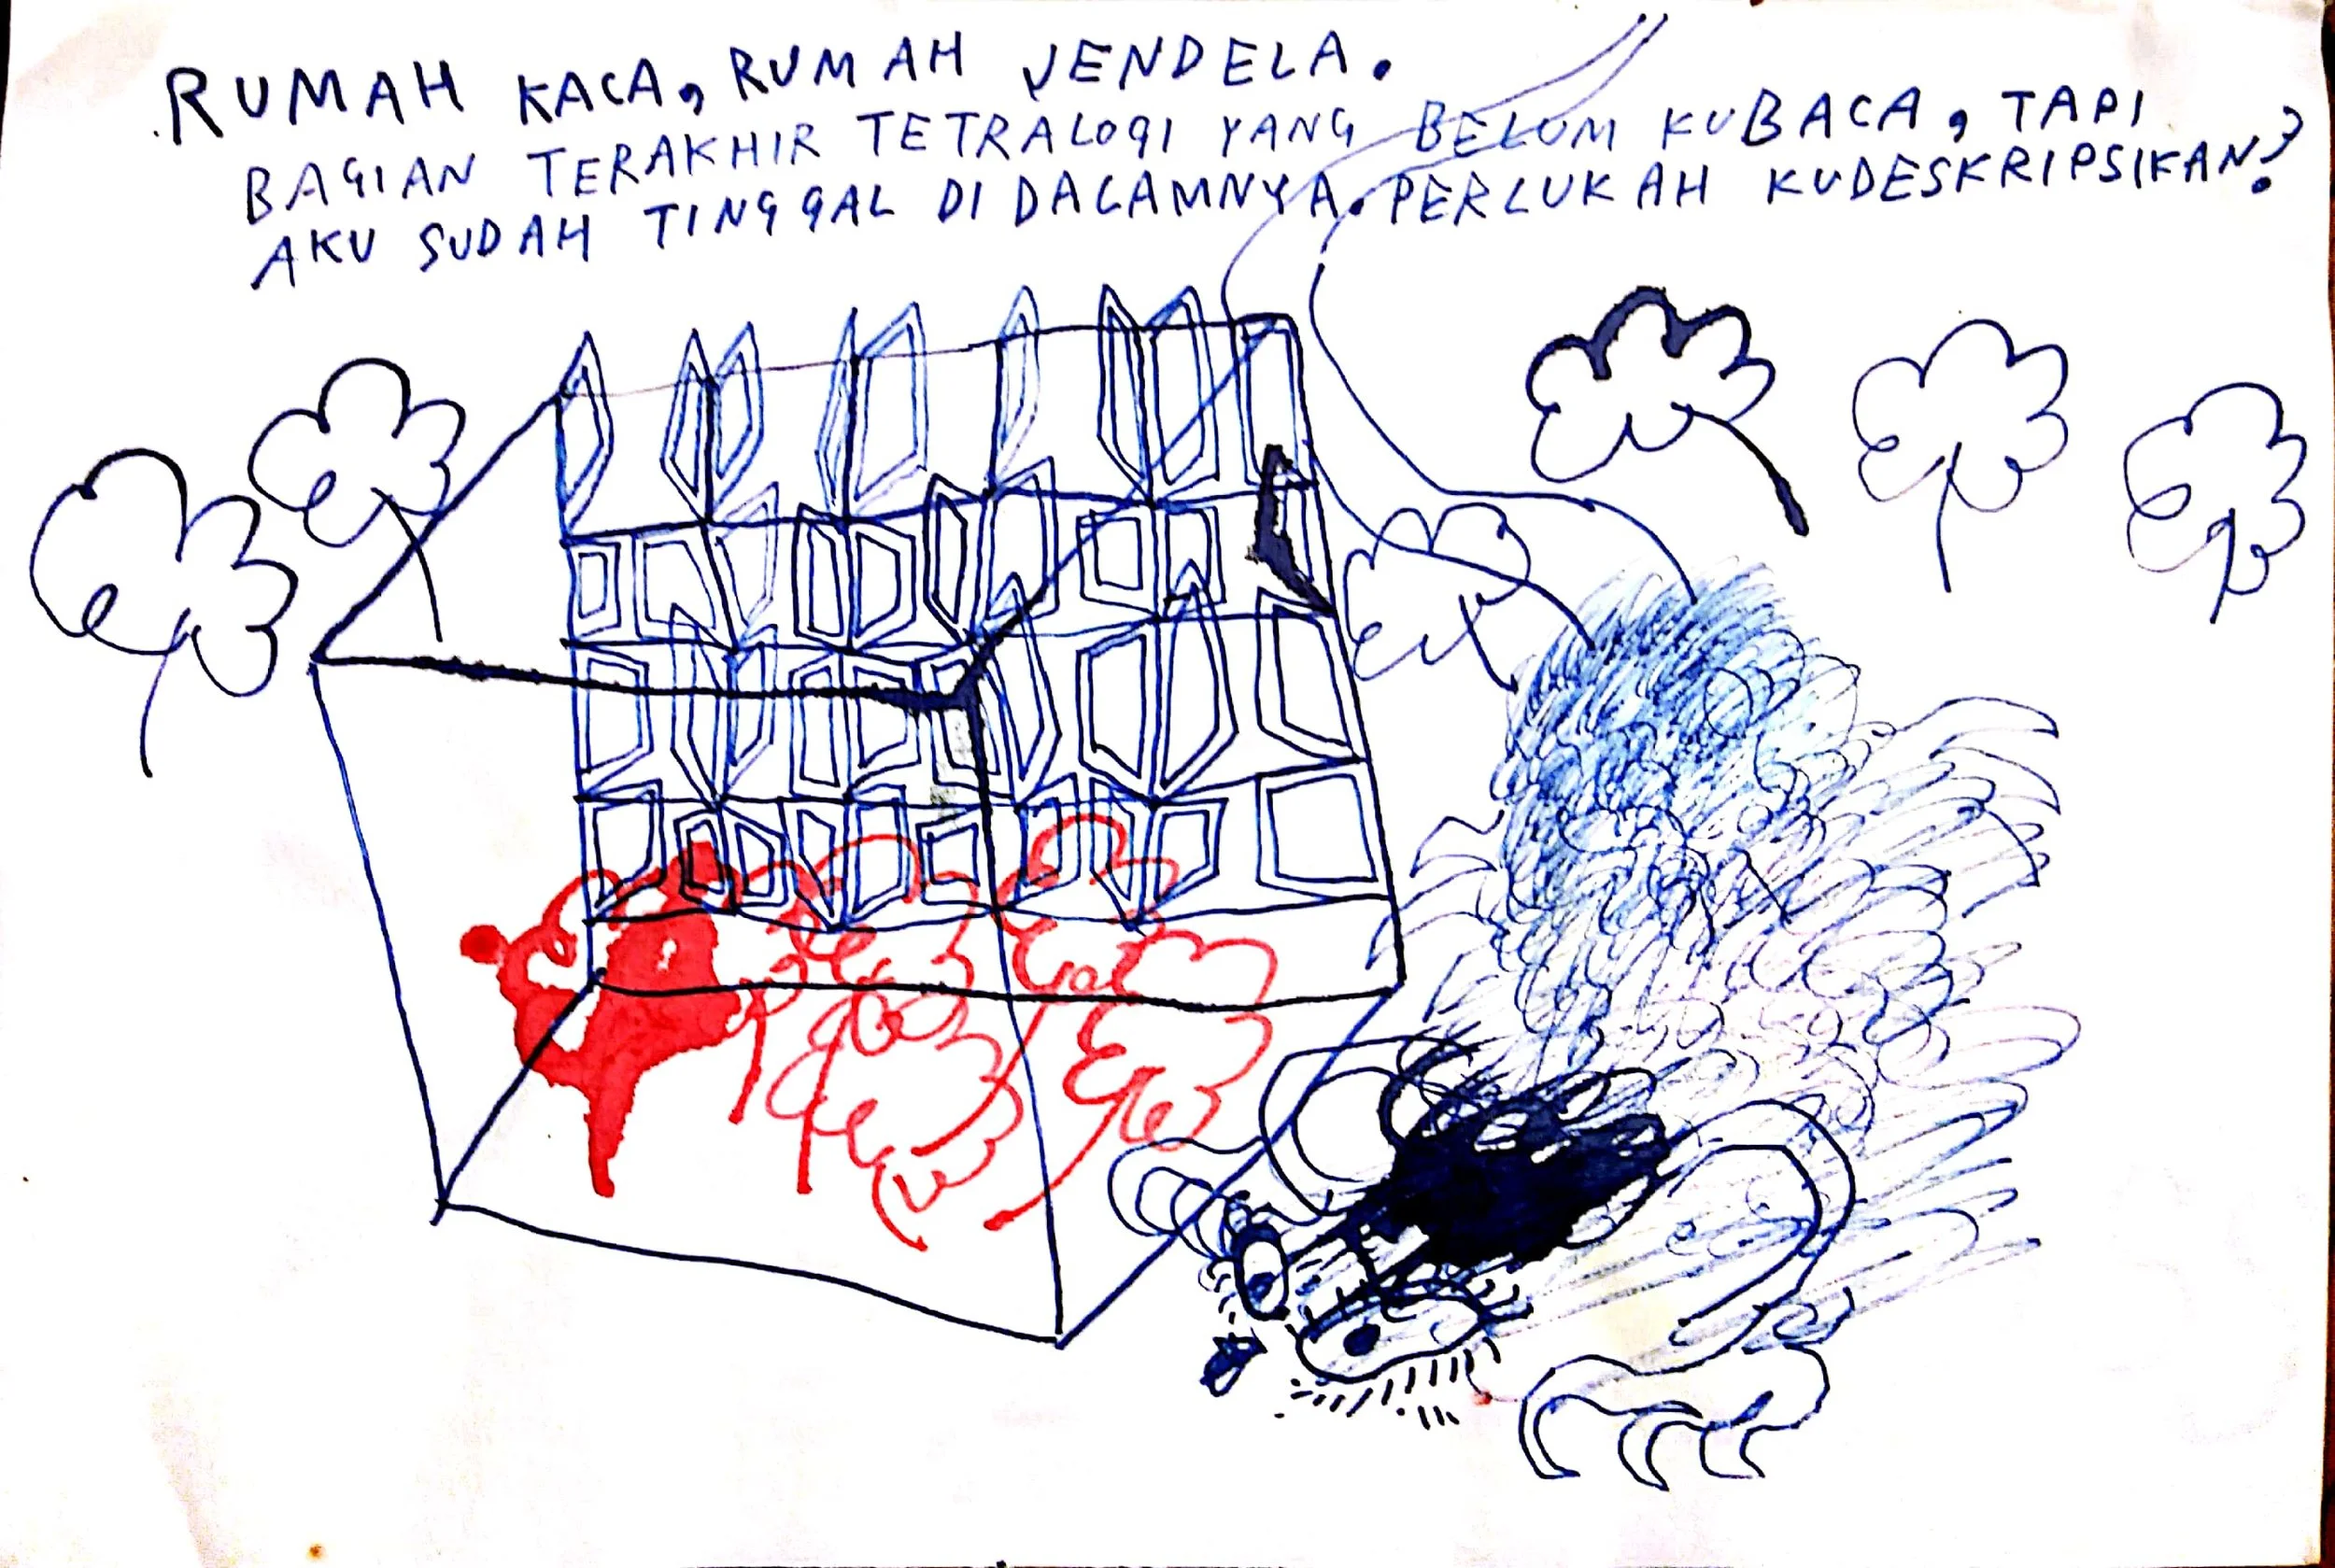 RUMAH KACA, RUMAH JENDELA.
BAGIAN TERAKHIR TETRALOGI YANG BELUM KUBACA, TAPI
AKU SUDAH TINGGAL DI DALAMNYA. PERLUKAH KUDESKRIPSIKAN?